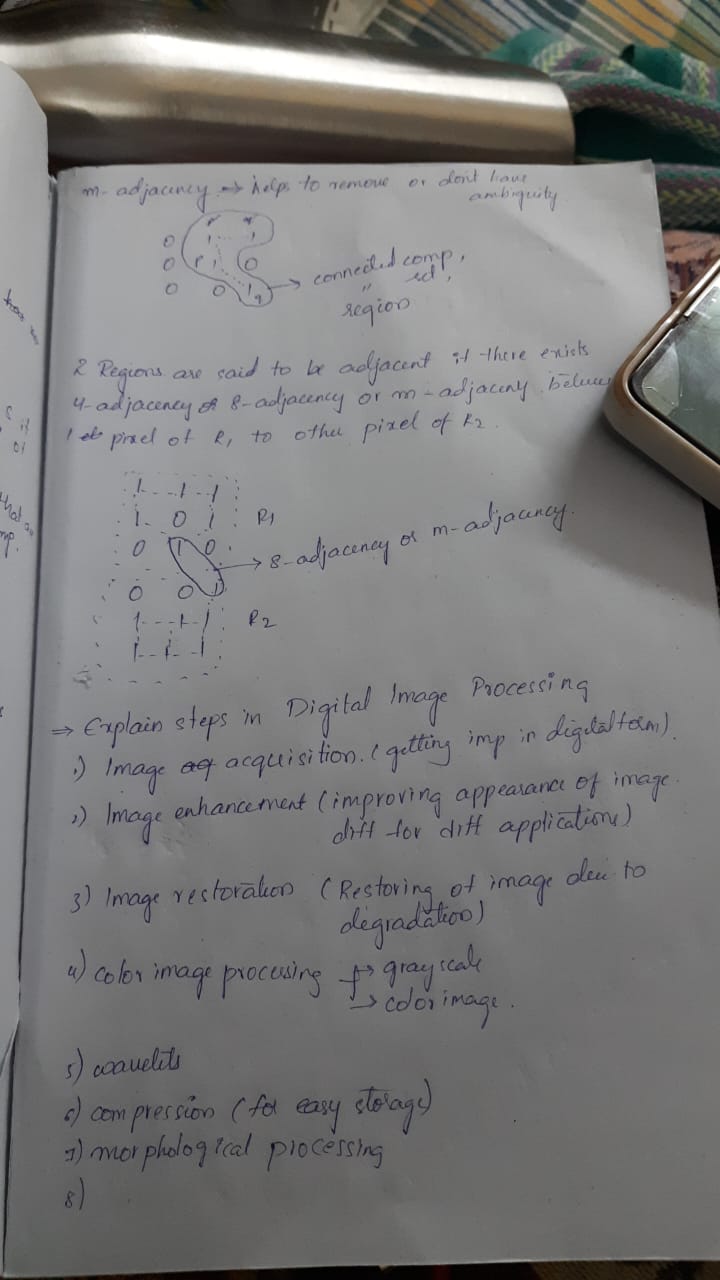 m-adjacency → helps to remove or dont have
ambiguity
0 1 1
0 P 1 0
0 0 1 q
→ connected comp,
" set,
region
2 Regions are said to be adjacent if there exists
4-adjacency or 8-adjacency or m-adjaceny betwee
1 pixel of R1 to othe pixel of R2.
1 - - 1 - 1
1 0 1 R1
0 1 0
→ 8-adjacency or m-adjacency.
0 0 1
1 - - - 1 - 1 R2
1 - - 1 - - 1
⇒ Explain steps in Digital Image Processing
1) Image acquisition. (getting imp in digital form).
2) Image enhancement (improving appearance of image.
diff for diff applications)
3) Image restoration (Restoring of image due to
degradation)
4) color image processing → gray scale
→ color image.
5) wavelets
6) compression (for easy storage)
7) morphological processing
8)